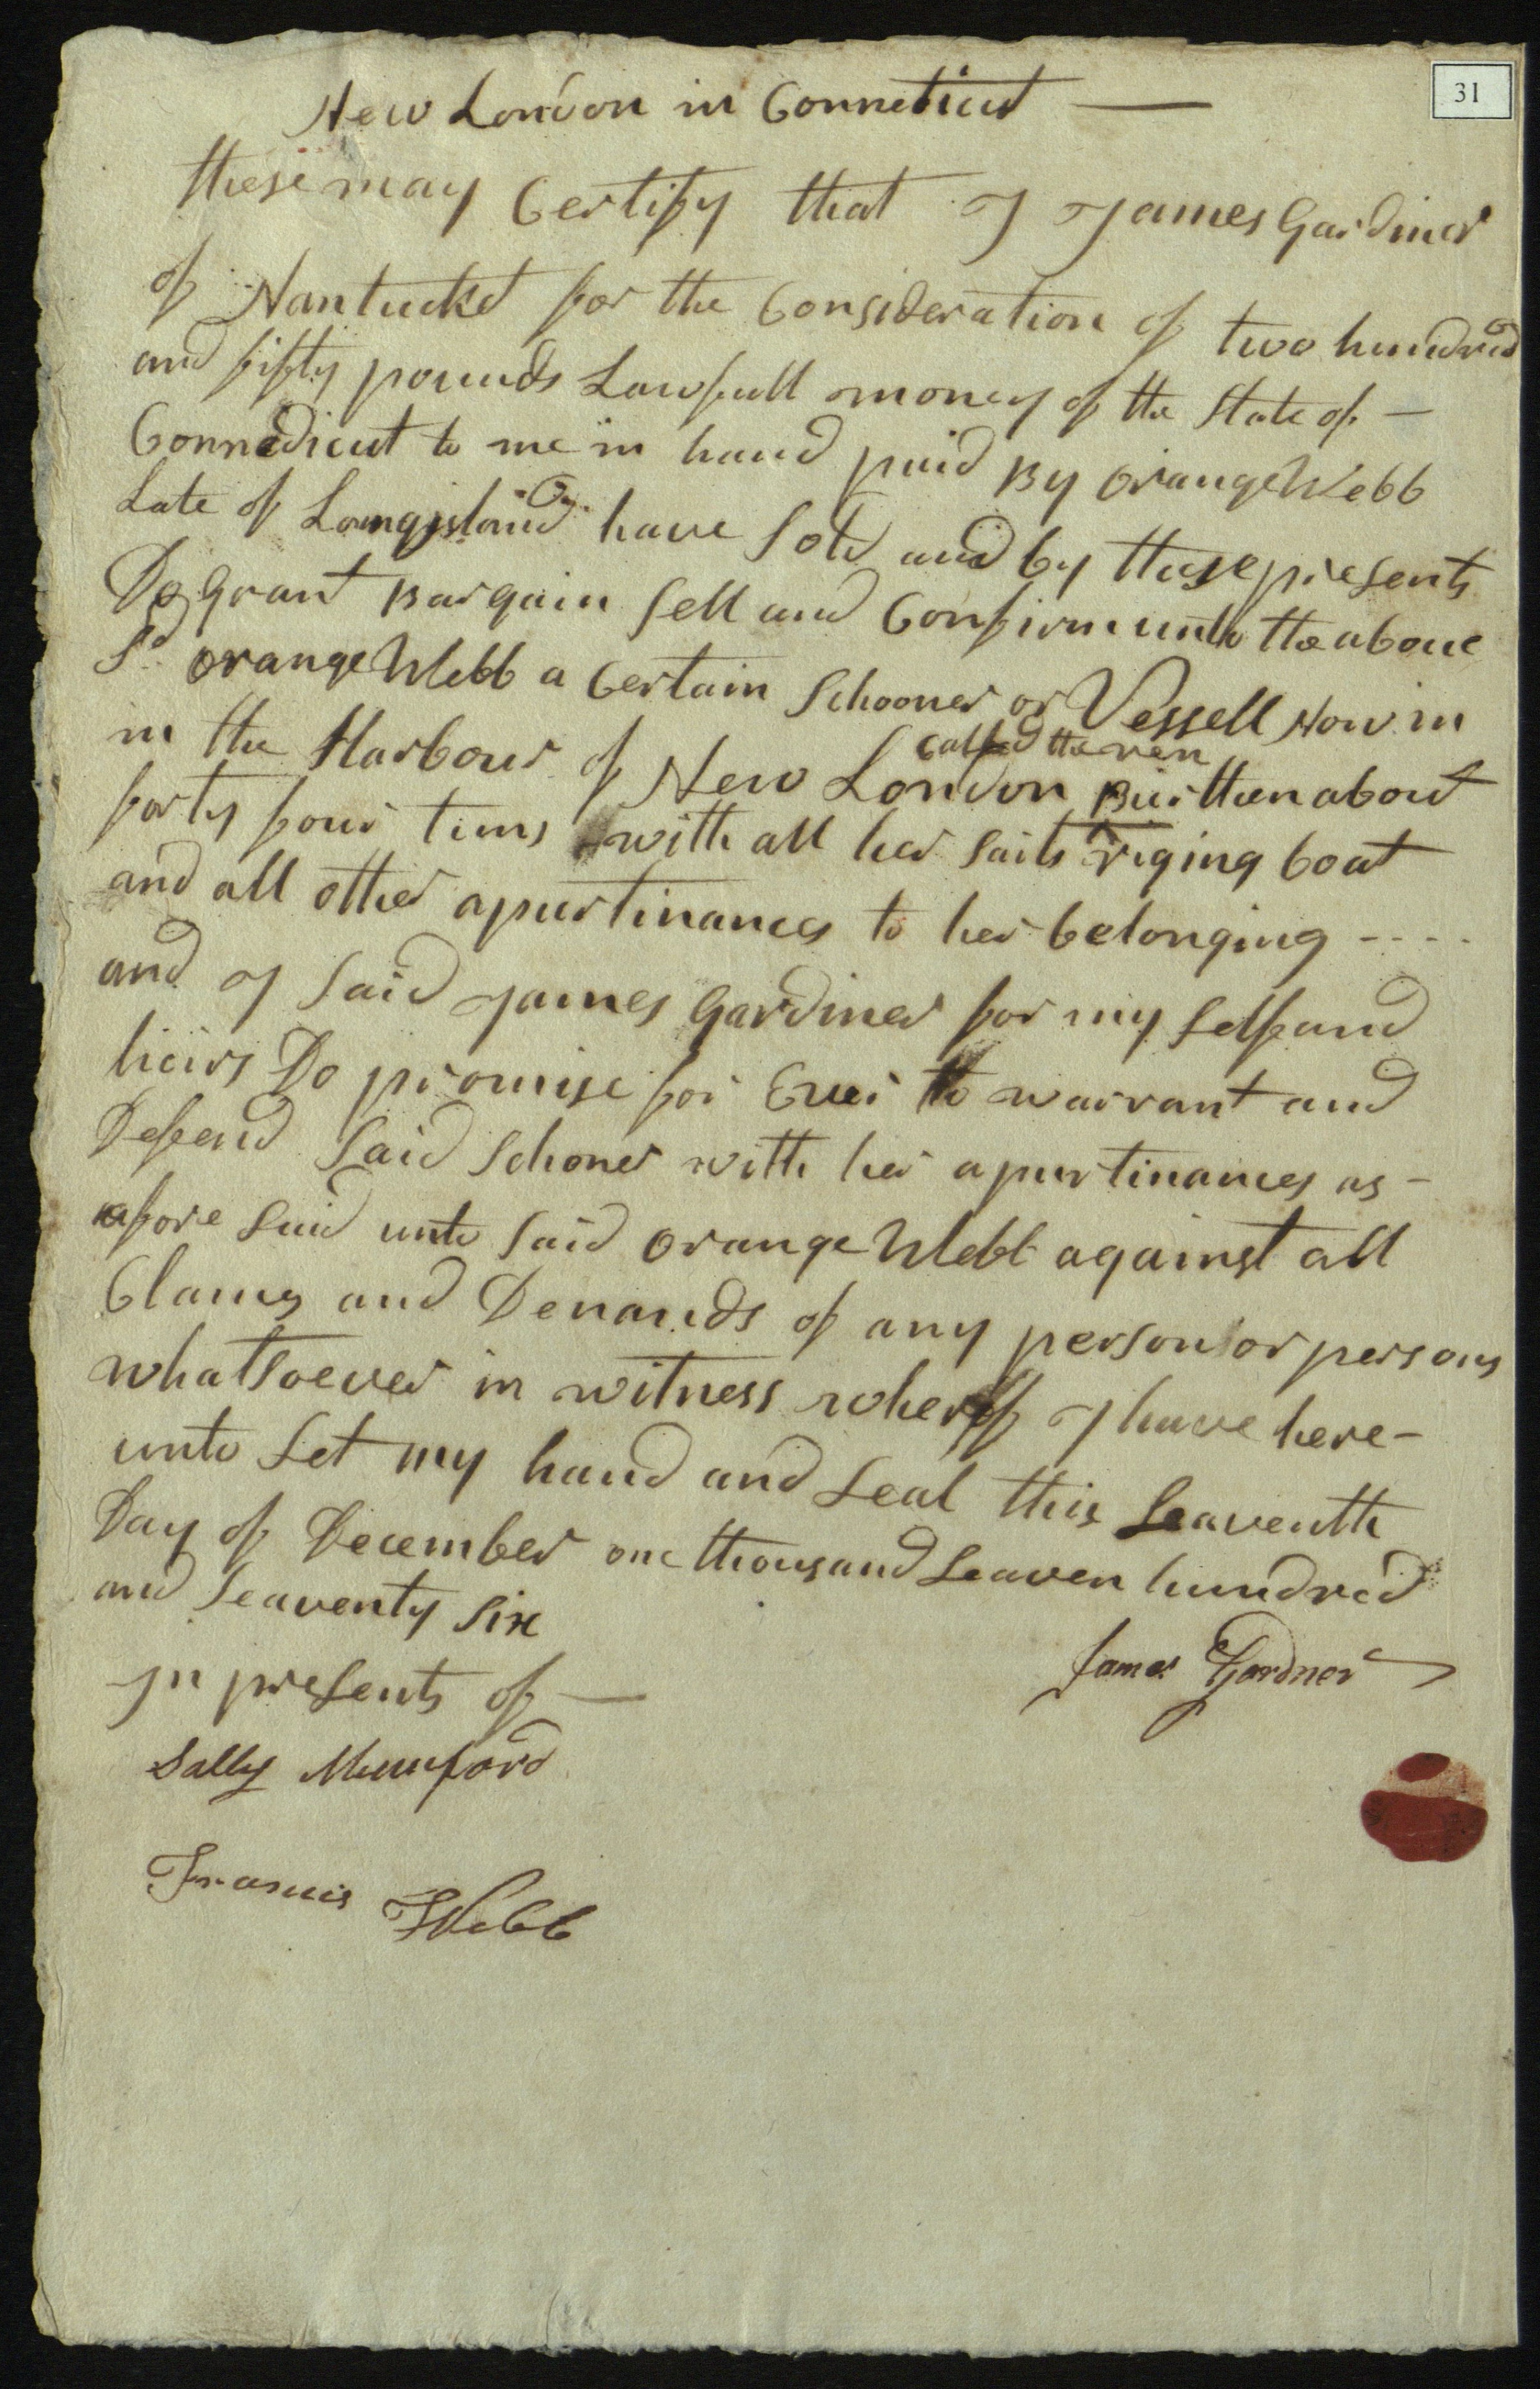 31
New London in Conneticut —
these may Certify that I James Gardiner
of Nantucket for the Consideration of two hundred
and fifty pounds Lawfull money of the State of —
Connedicut to me in hand paid By Orange Webb
Late of Longisland have Sold and by these presents
Do Grant Bargain Sell and Confirm unto the above
Sd Orange Webb a Certain Schooner or Vessell Now in
in the Harbour of New London Burthen about
Called the
forty four tuns with all her Sails riging boat
and all other apurtinances to her belonging - - - -
and I Said James Gardiner for my Self and
heirs Do promise for Ever to warrant and
Defend Said Schoner with her apurtinances as -
afore Said unto Said Orange Webb against all
Clames and Demands of any person or persons
whatsoever in witness wherof I have here-
unto Set my hand and Seal this Seaventh
Day of December one thousand Seaven hundred
and Seaventy Six
In presents of —
James Gardner
Sally Mumford
Francis Webb